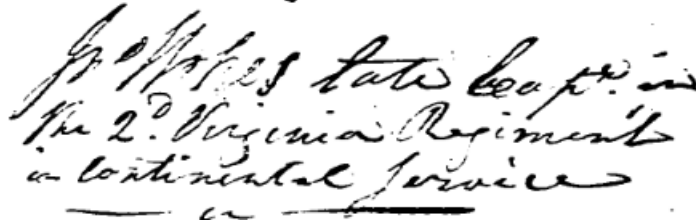 Jno Stokes late Capt. in
the 2d. Virginia Regiment
in Continental Service